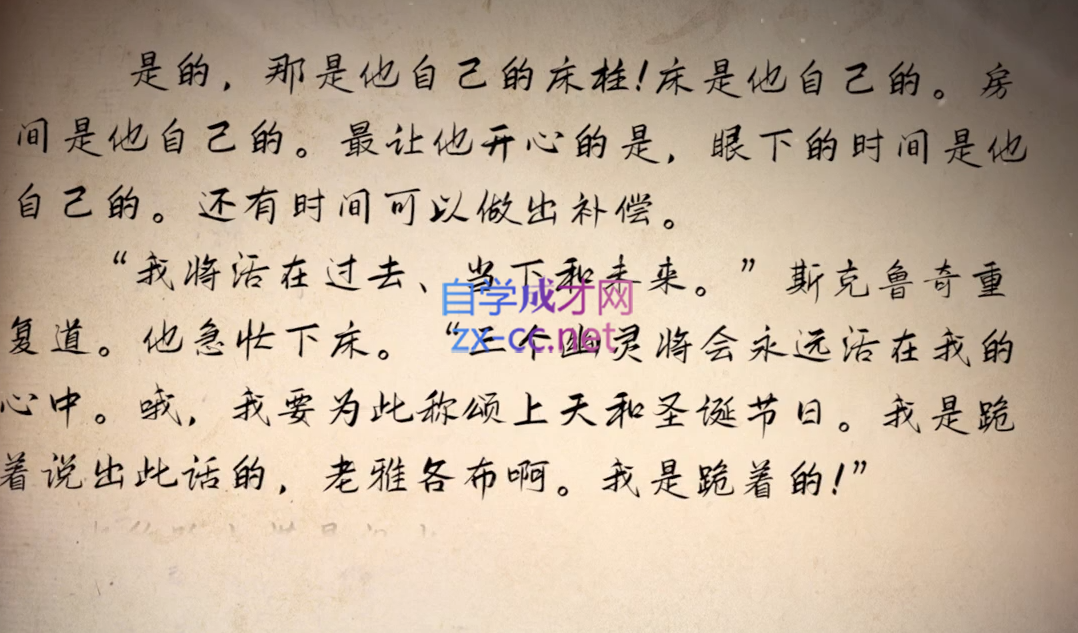 是的，那是他自己的床柱！床是他自己的。房
间是他自己的。最让他开心的是，眼下的时间是他
自己的。还有时间可以做出补偿。
“我将活在过去、当下和未来。”斯克鲁奇重
自学成才网
复道。他急忙下床。“三个幽灵将会永远活在我的
zx-cc.net
心中。哦，我要为此称颂上天和圣诞节日。我是跪
着说出此话的，老雅各布啊。我是跪着的！”